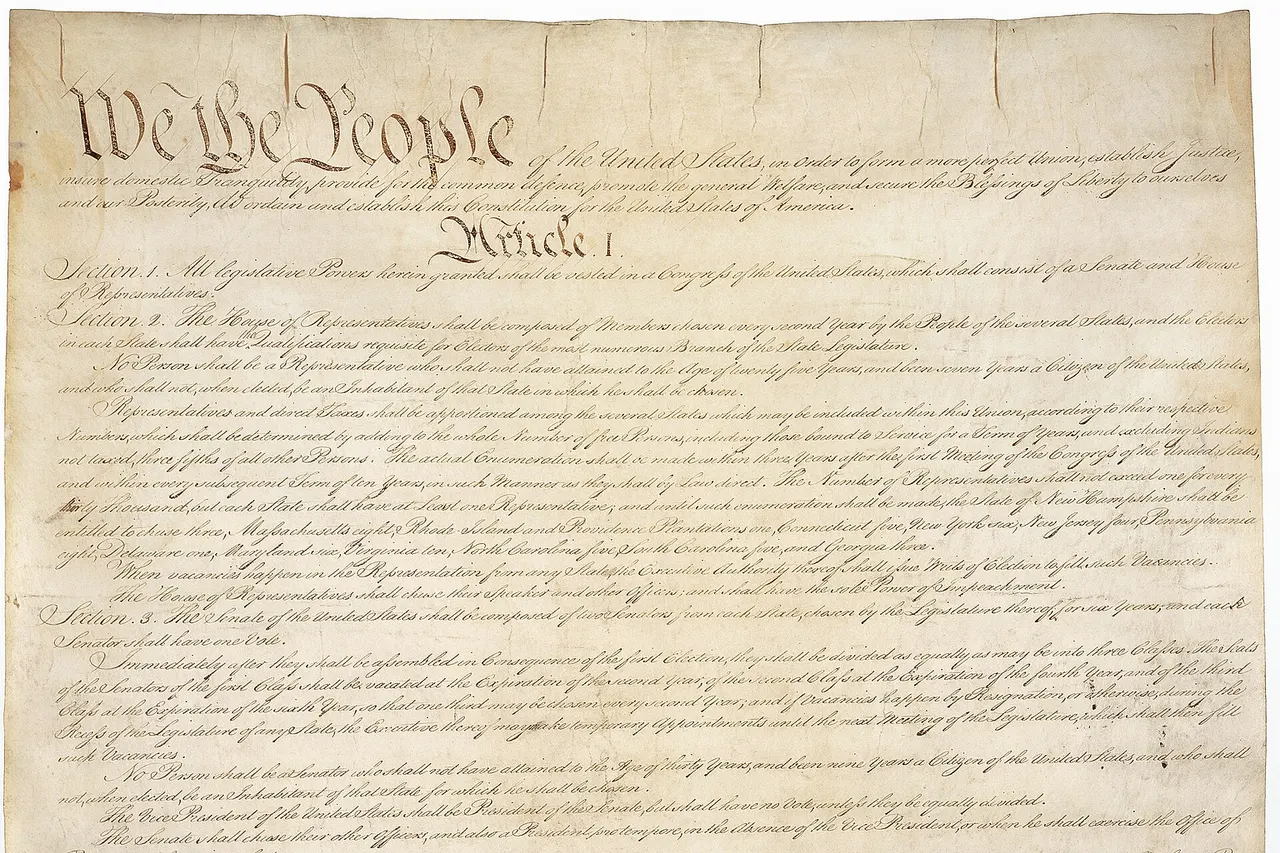 We the People of the United States, in Order to form a more perfect Union, establish Justice,
insure domestic Tranquility, provide for the common defence, promote the general Welfare, and secure the Blessings of Liberty to ourselves
and our Posterity, do ordain and establish this Constitution for the United States of America.
Article. I.
Section. 1. All legislative Powers herein granted shall be vested in a Congress of the United States, which shall consist of a Senate and House
of Representatives.
Section. 2. The House of Representatives shall be composed of Members chosen every second Year by the People of the several States, and the Electors
in each State shall have the Qualifications requisite for Electors of the most numerous Branch of the State Legislature.
No Person shall be a Representative who shall not have attained to the Age of twenty five Years, and been seven Years a Citizen of the United States,
and who shall not, when elected, be an Inhabitant of that State in which he shall be chosen.
Representatives and direct Taxes shall be apportioned among the several States which may be included within this Union, according to their respective
Numbers, which shall be determined by adding to the whole Number of free Persons, including those bound to Service for a Term of Years, and excluding Indians
not taxed, three fifths of all other Persons. The actual Enumeration shall be made within three Years after the first Meeting of the Congress of the United States,
and within every subsequent Term of ten Years, in such Manner as they shall by Law direct. The Number of Representatives shall not exceed one for every
thirty Thousand, but each State shall have at Least one Representative; and until such enumeration shall be made, the State of New Hampshire shall be
entitled to chuse three, Massachusetts eight, Rhode-Island and Providence Plantations one, Connecticut five, New York six, New Jersey four, Pennsylvania
eight, Delaware one, Maryland six, Virginia ten, North Carolina five, South Carolina five, and Georgia three.
When vacancies happen in the Representation from any State, the Executive Authority thereof shall issue Writs of Election to fill such Vacancies.
The House of Representatives shall chuse their Speaker and other Officers; and shall have the sole Power of Impeachment.
Section. 3. The Senate of the United States shall be composed of two Senators from each State, chosen by the Legislature thereof, for six Years; and each
Senator shall have one Vote.
Immediately after they shall be assembled in Consequence of the first Election, they shall be divided as equally as may be into three Classes. The Seats
of the Senators of the first Class shall be vacated at the Expiration of the second Year, of the second Class at the Expiration of the fourth Year, and of the third
Class at the Expiration of the sixth Year, so that one third may be chosen every second Year; and if Vacancies happen by Resignation, or otherwise, during the
Recess of the Legislature of any State, the Executive thereof may make temporary Appointments until the next Meeting of the Legislature, which shall then fill
such Vacancies.
No Person shall be a Senator who shall not have attained to the Age of thirty Years, and been nine Years a Citizen of the United States, and who shall
not, when elected, be an Inhabitant of that State for which he shall be chosen.
The Vice President of the United States shall be President of the Senate, but shall have no Vote, unless they be equally divided.
The Senate shall chuse their other Officers, and also a President pro tempore, in the Absence of the Vice President, or when he shall exercise the Office of